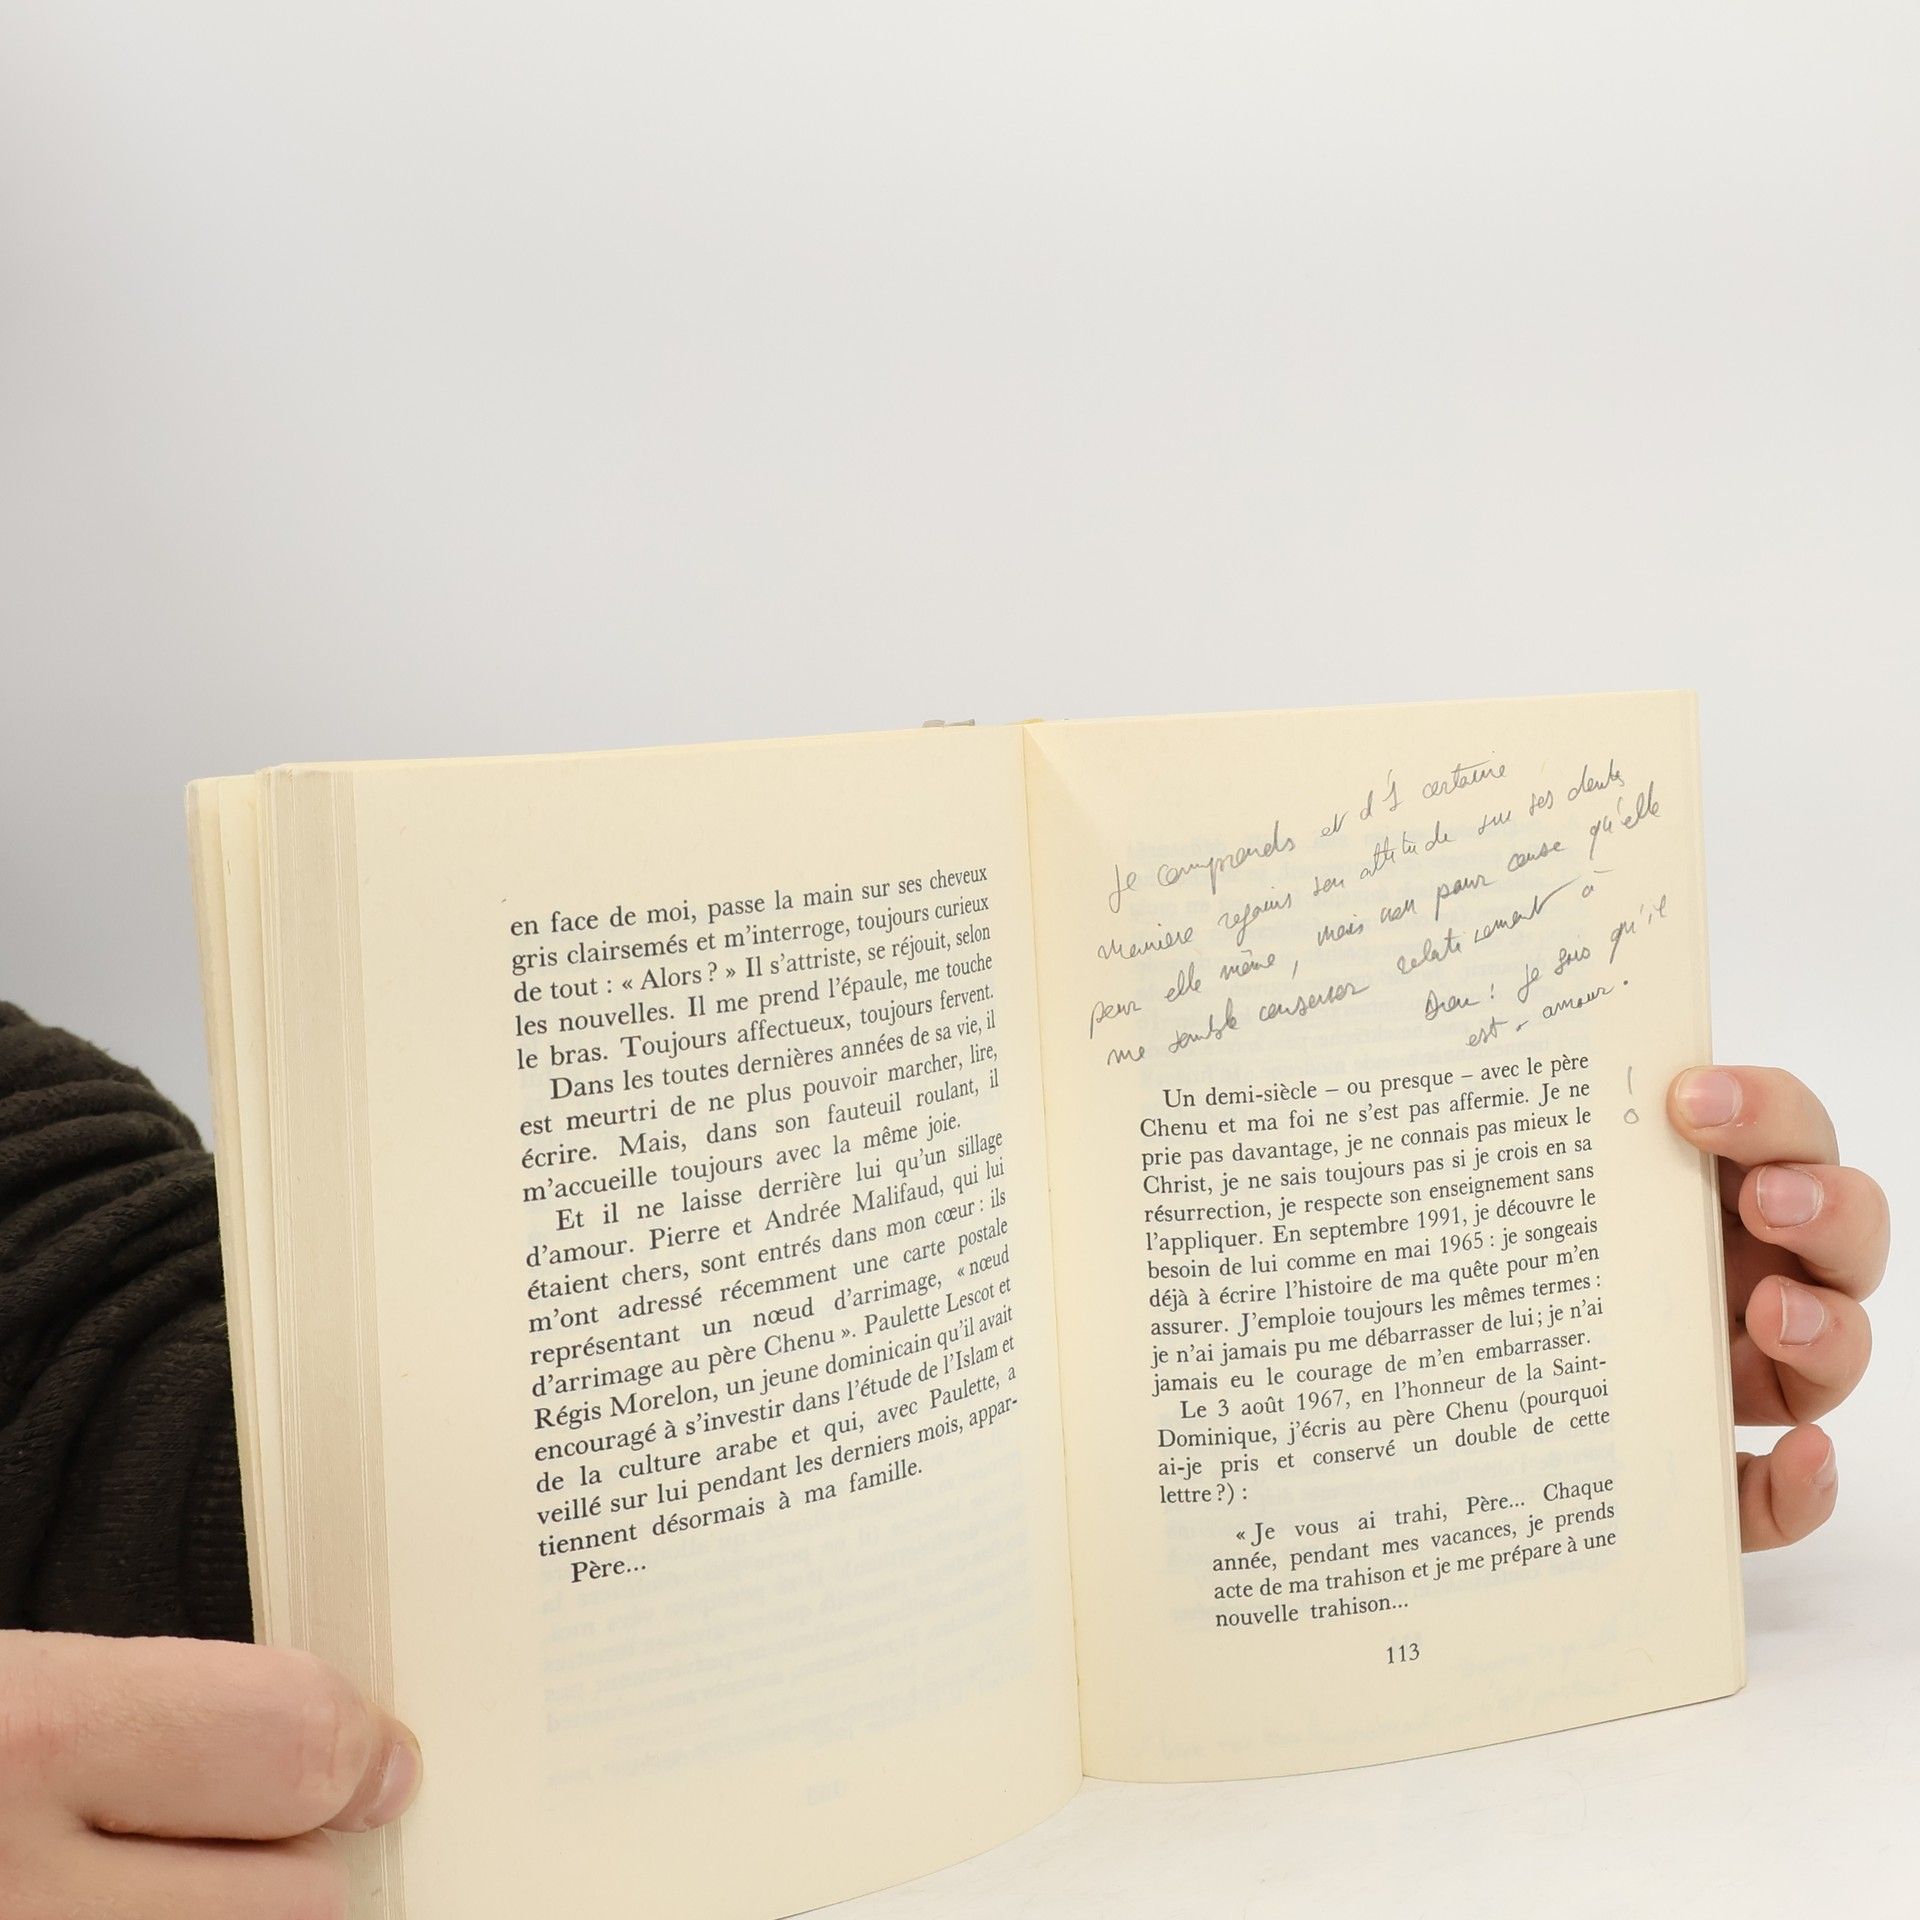 en face de moi, passe la main sur ses cheveux
gris clairsemés et m'interroge, toujours curieux
de tout : « Alors ? » Il s'attriste, se réjouit, selon
les nouvelles. Il me prend l'épaule, me touche
le bras. Toujours affectueux, toujours fervent.
Dans les toutes dernières années de sa vie, il
est meurtri de ne plus pouvoir marcher, lire,
écrire. Mais, dans son fauteuil roulant, il
m'accueille toujours avec la même joie.
Et il ne laisse derrière lui qu'un sillage
d'amour. Pierre et Andrée Malifaud, qui lui
étaient chers, sont entrés dans mon cœur : ils
m'ont adressé récemment une carte postale
représentant un nœud d'arrimage, « nœud
d'arrimage au père Chenu ». Paulette Lescot et
Régis Morelon, un jeune dominicain qu'il avait
encouragé à s'investir dans l'étude de l'Islam et
de la culture arabe et qui, avec Paulette, a
veillé sur lui pendant les derniers mois, appar-
tiennent désormais à ma famille.
Père...
Je comprends et d'1 certaine
manière rejoins son attitude sur ses doutes
pour elle même, mais non pour cause qu'elle
me semble conserver relativement à
Dieu : je sais qu'il
est amour.
Un demi-siècle – ou presque – avec le père
Chenu et ma foi ne s'est pas affermie. Je ne
prie pas davantage, je ne connais pas mieux le
Christ, je ne sais toujours pas si je crois en sa
résurrection, je respecte son enseignement sans
l'appliquer. En septembre 1991, je découvre le
besoin de lui comme en mai 1965 : je songeais
déjà à écrire l'histoire de ma quête pour m'en
assurer. J'emploie toujours les mêmes termes :
je n'ai jamais pu me débarrasser de lui ; je n'ai
jamais eu le courage de m'en embarrasser.
Le 3 août 1967, en l'honneur de la Saint-
Dominique, j'écris au père Chenu (pourquoi
ai-je pris et conservé un double de cette
lettre ?) :
« Je vous ai trahi, Père... Chaque
année, pendant mes vacances, je prends
acte de ma trahison et je me prépare à une
nouvelle trahison...
113